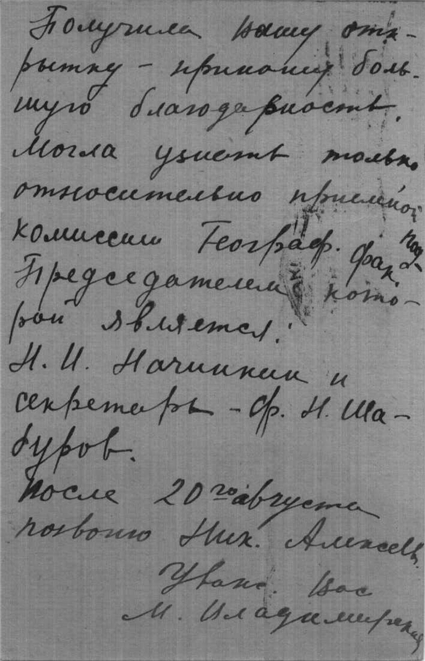 Получила вашу отк-
рытку – приношу боль-
шую благодарность.
Могла узнать только
относительно приемной
комиссии Географ. фак.
Председателем кото-
рой является:
Н. И. Начинкин и
секретарь – Ф. Н. Ша-
буров.
После 20го августа
позвоню Ник. Алексев.
Уваж. вас
М. Владимирская